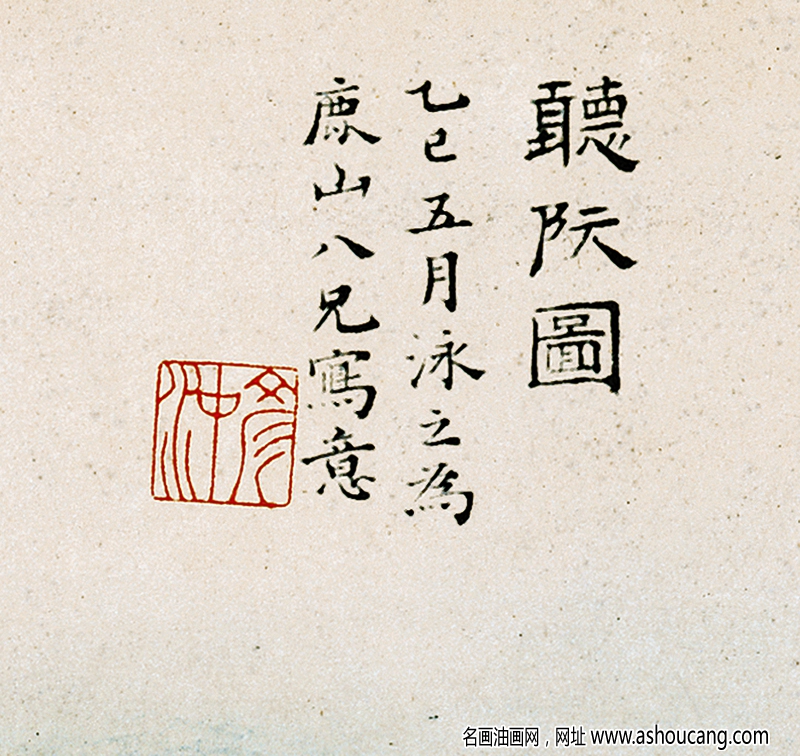 聽阮圖
乙巳五月泳之為
鹿山八兄寫意
名画油画网，网址 www.ashoucang.com